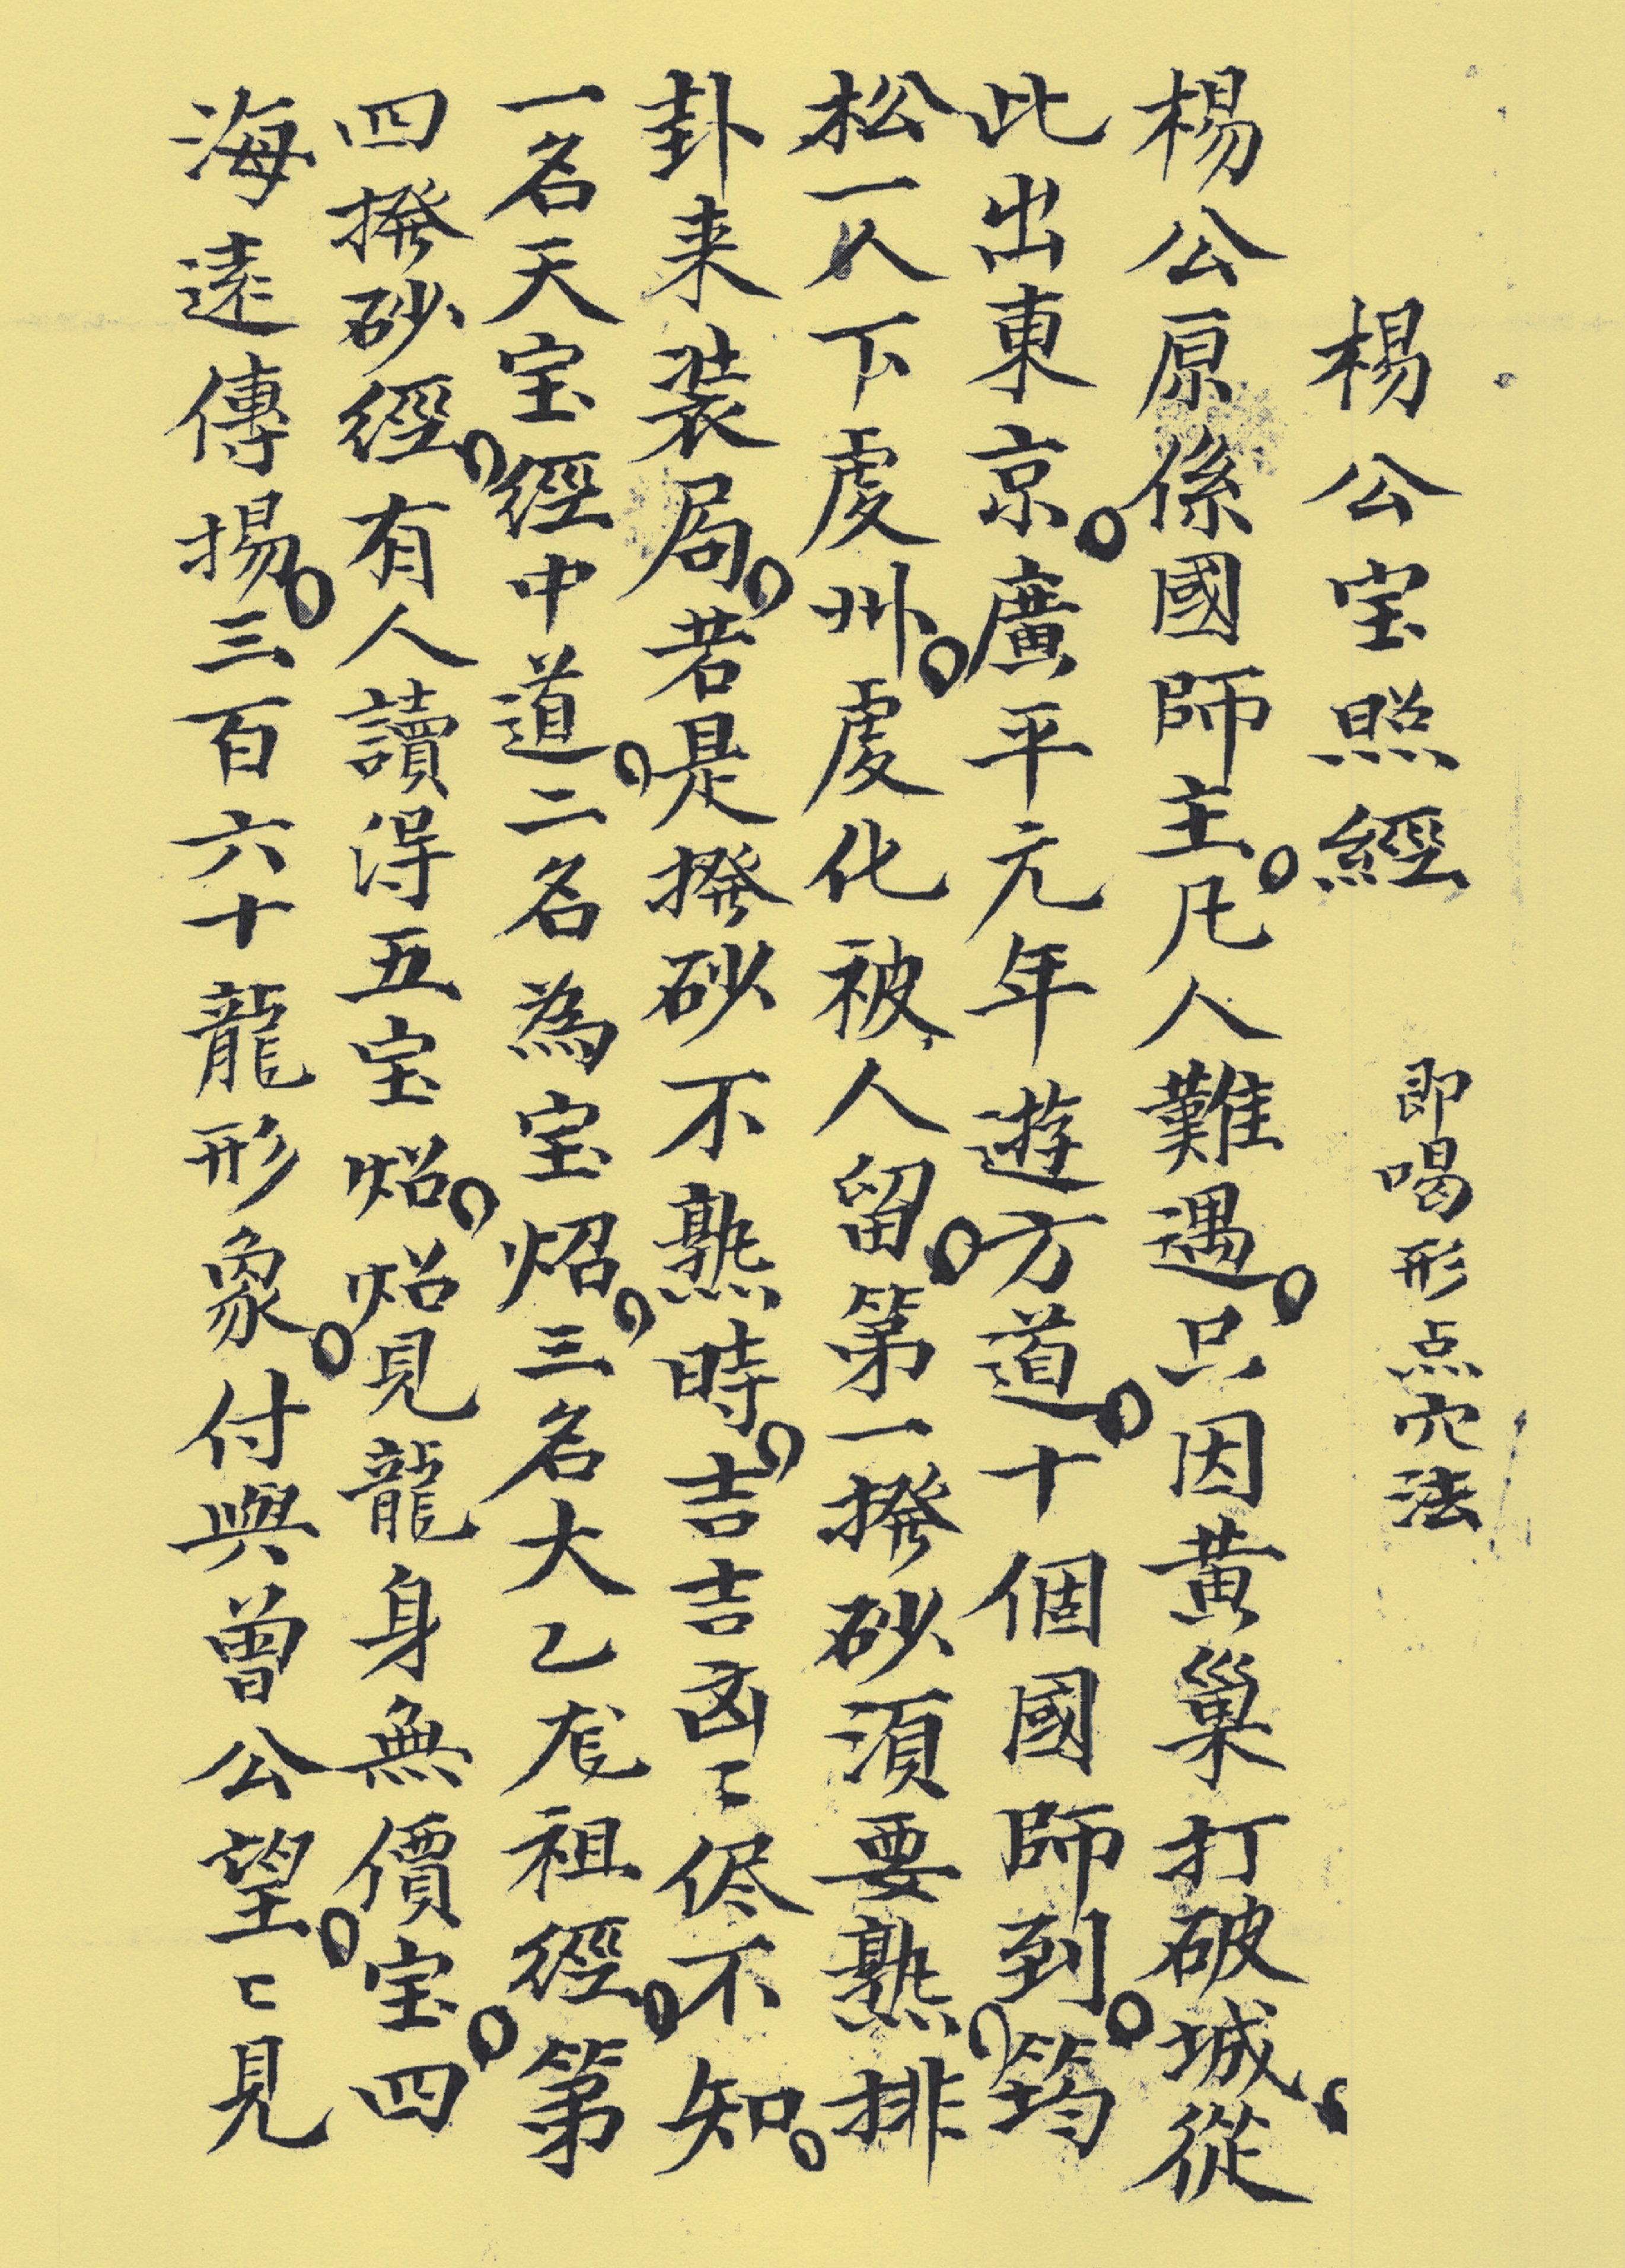 楊公宝照經 即喝形点穴法
楊公原係國師主。凡人難遇。只因黃巢打破城、從
此出東京。廣平元年遊方道。十個國師到。筠
松一人下虔州。虔化被人留。第一撥砂須要熟，排
卦来装局，若是撥砂不熟時，吉吉凶〻侭不知。
一名天宝經中道，二名為宝炤，三名大乙龙祖經。第
四撥砂經，有人讀得五宝炤，炤見龍身無價宝。四
海遠傳揚。三百六十龍形象。付與曾公望。〻見